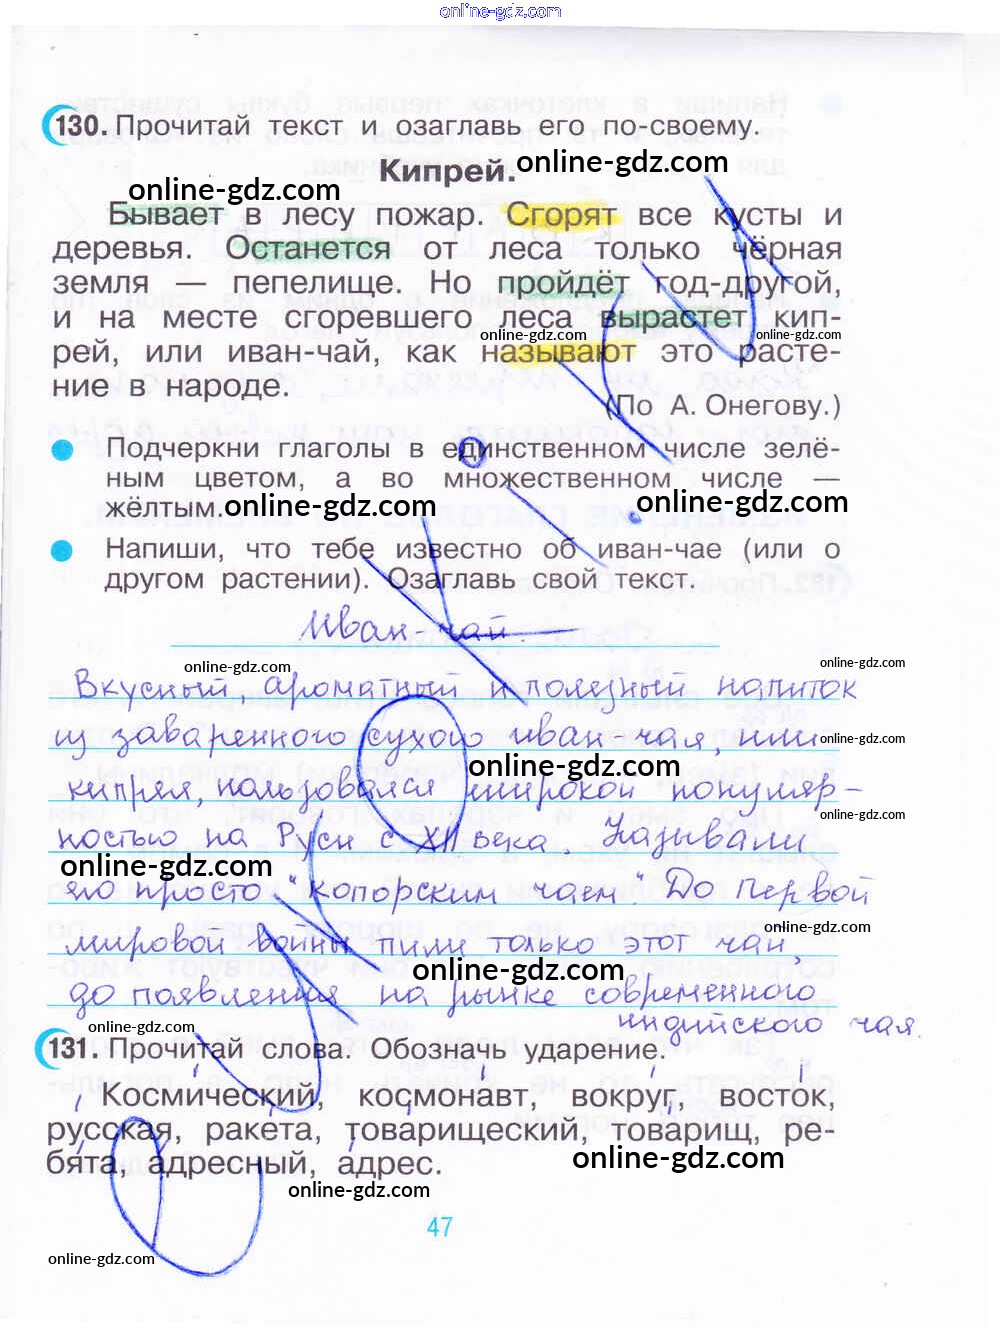 online-gdz.com
130. Прочитай текст и озаглавь его по-своему.
online-gdz.com
Кипрей.
online-gdz.com
Бывает в лесу пожар. Сгорят все кусты и
деревья. Останется от леса только чёрная
земля — пепелище. Но пройдёт год-другой,
и на месте сгоревшего леса вырастет кип-
online-gdz.com
online-gdz.com
рей, или иван-чай, как называют это расте-
ние в народе.
(По А. Онегову.)
Подчеркни глаголы в единственном числе зелё-
ным цветом, а во множественном числе —
жёлтым.
online-gdz.com
online-gdz.com
Напиши, что тебе известно об иван-чае (или о
другом растении). Озаглавь свой текст.
Иван-чай.
online-gdz.com
online-gdz.com
Вкусный ароматный и полезный напиток
из заваренного сухого иван чая, или
online-gdz.com
online-gdz.com
кипрея, пользовался широкой популяр-
online-gdz.com
ностью на Руси с XII века. Называли
online-gdz.com
его просто "копорским чаем". До Первой
online-gdz.com
мировой войны пили только этот чай,
online-gdz.com
до появления на рынке современного
индийского чая.
online-gdz.com
131. Прочитай слова. Обозначь ударение.
Космический, космонавт, вокруг, восток,
русская, ракета, товарищеский, товарищ, ре-
бята, адресный, адрес.
online-gdz.com
online-gdz.com
47
online-gdz.com